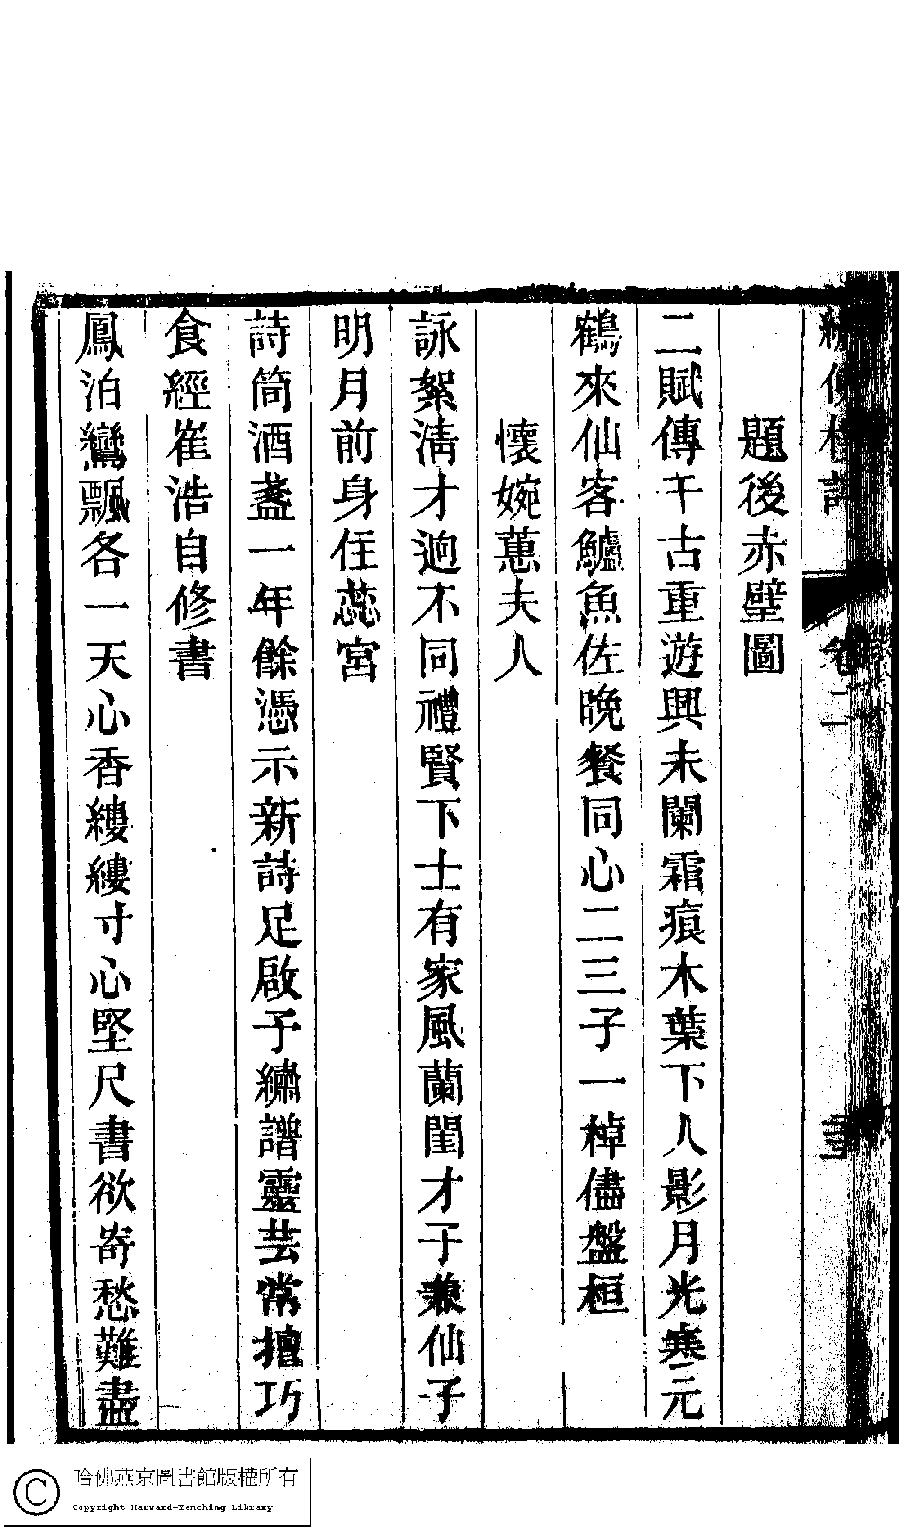 卷二
題後赤壁圖
二賦傳千古重遊興未闌霜痕木葉下人影月光寒元
鶴來仙客鱸魚佐晚餐同心二三子一棹儘盤桓
懷婉蕙夫人
詠絮淸才迥不同禮賢下士有家風蘭閨才子兼仙子
明月前身住蕊宮
詩筒酒盞一年餘憑示新詩足啟予繡譜靈芸常擅巧
食經崔浩自修書
鳳泊鸞飄各一天心香縷縷寸心堅尺書欲寄愁難盡
哈佛燕京圖書館版權所有
Copyright Harvard-Yenching Library